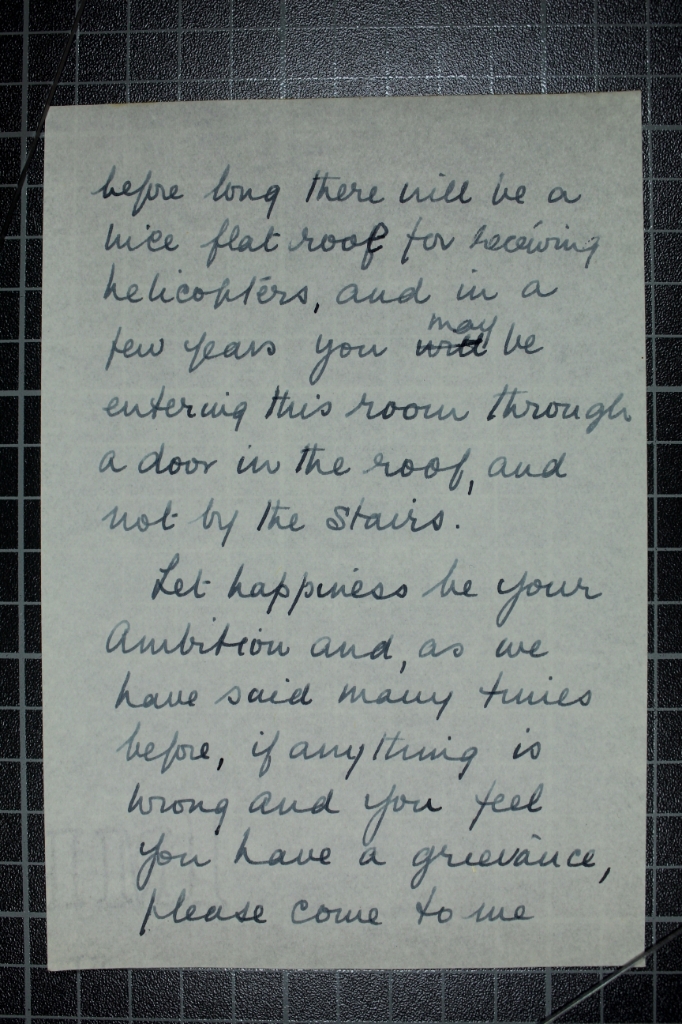 before long there will be a
nice flat roof for receiving
helicopters, and in a
may
few years you will be
entering this room through
a door in the roof, and
not by the stairs.
Let happiness be your
Ambition and, as we
have said many times
before, if anything is
wrong and you feel
you have a grievance,
please come to me